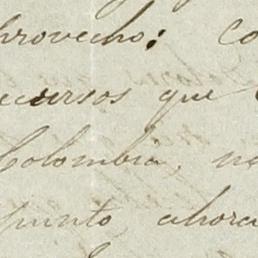 provecho: co
recursos que
Colombia, no
punto ahora